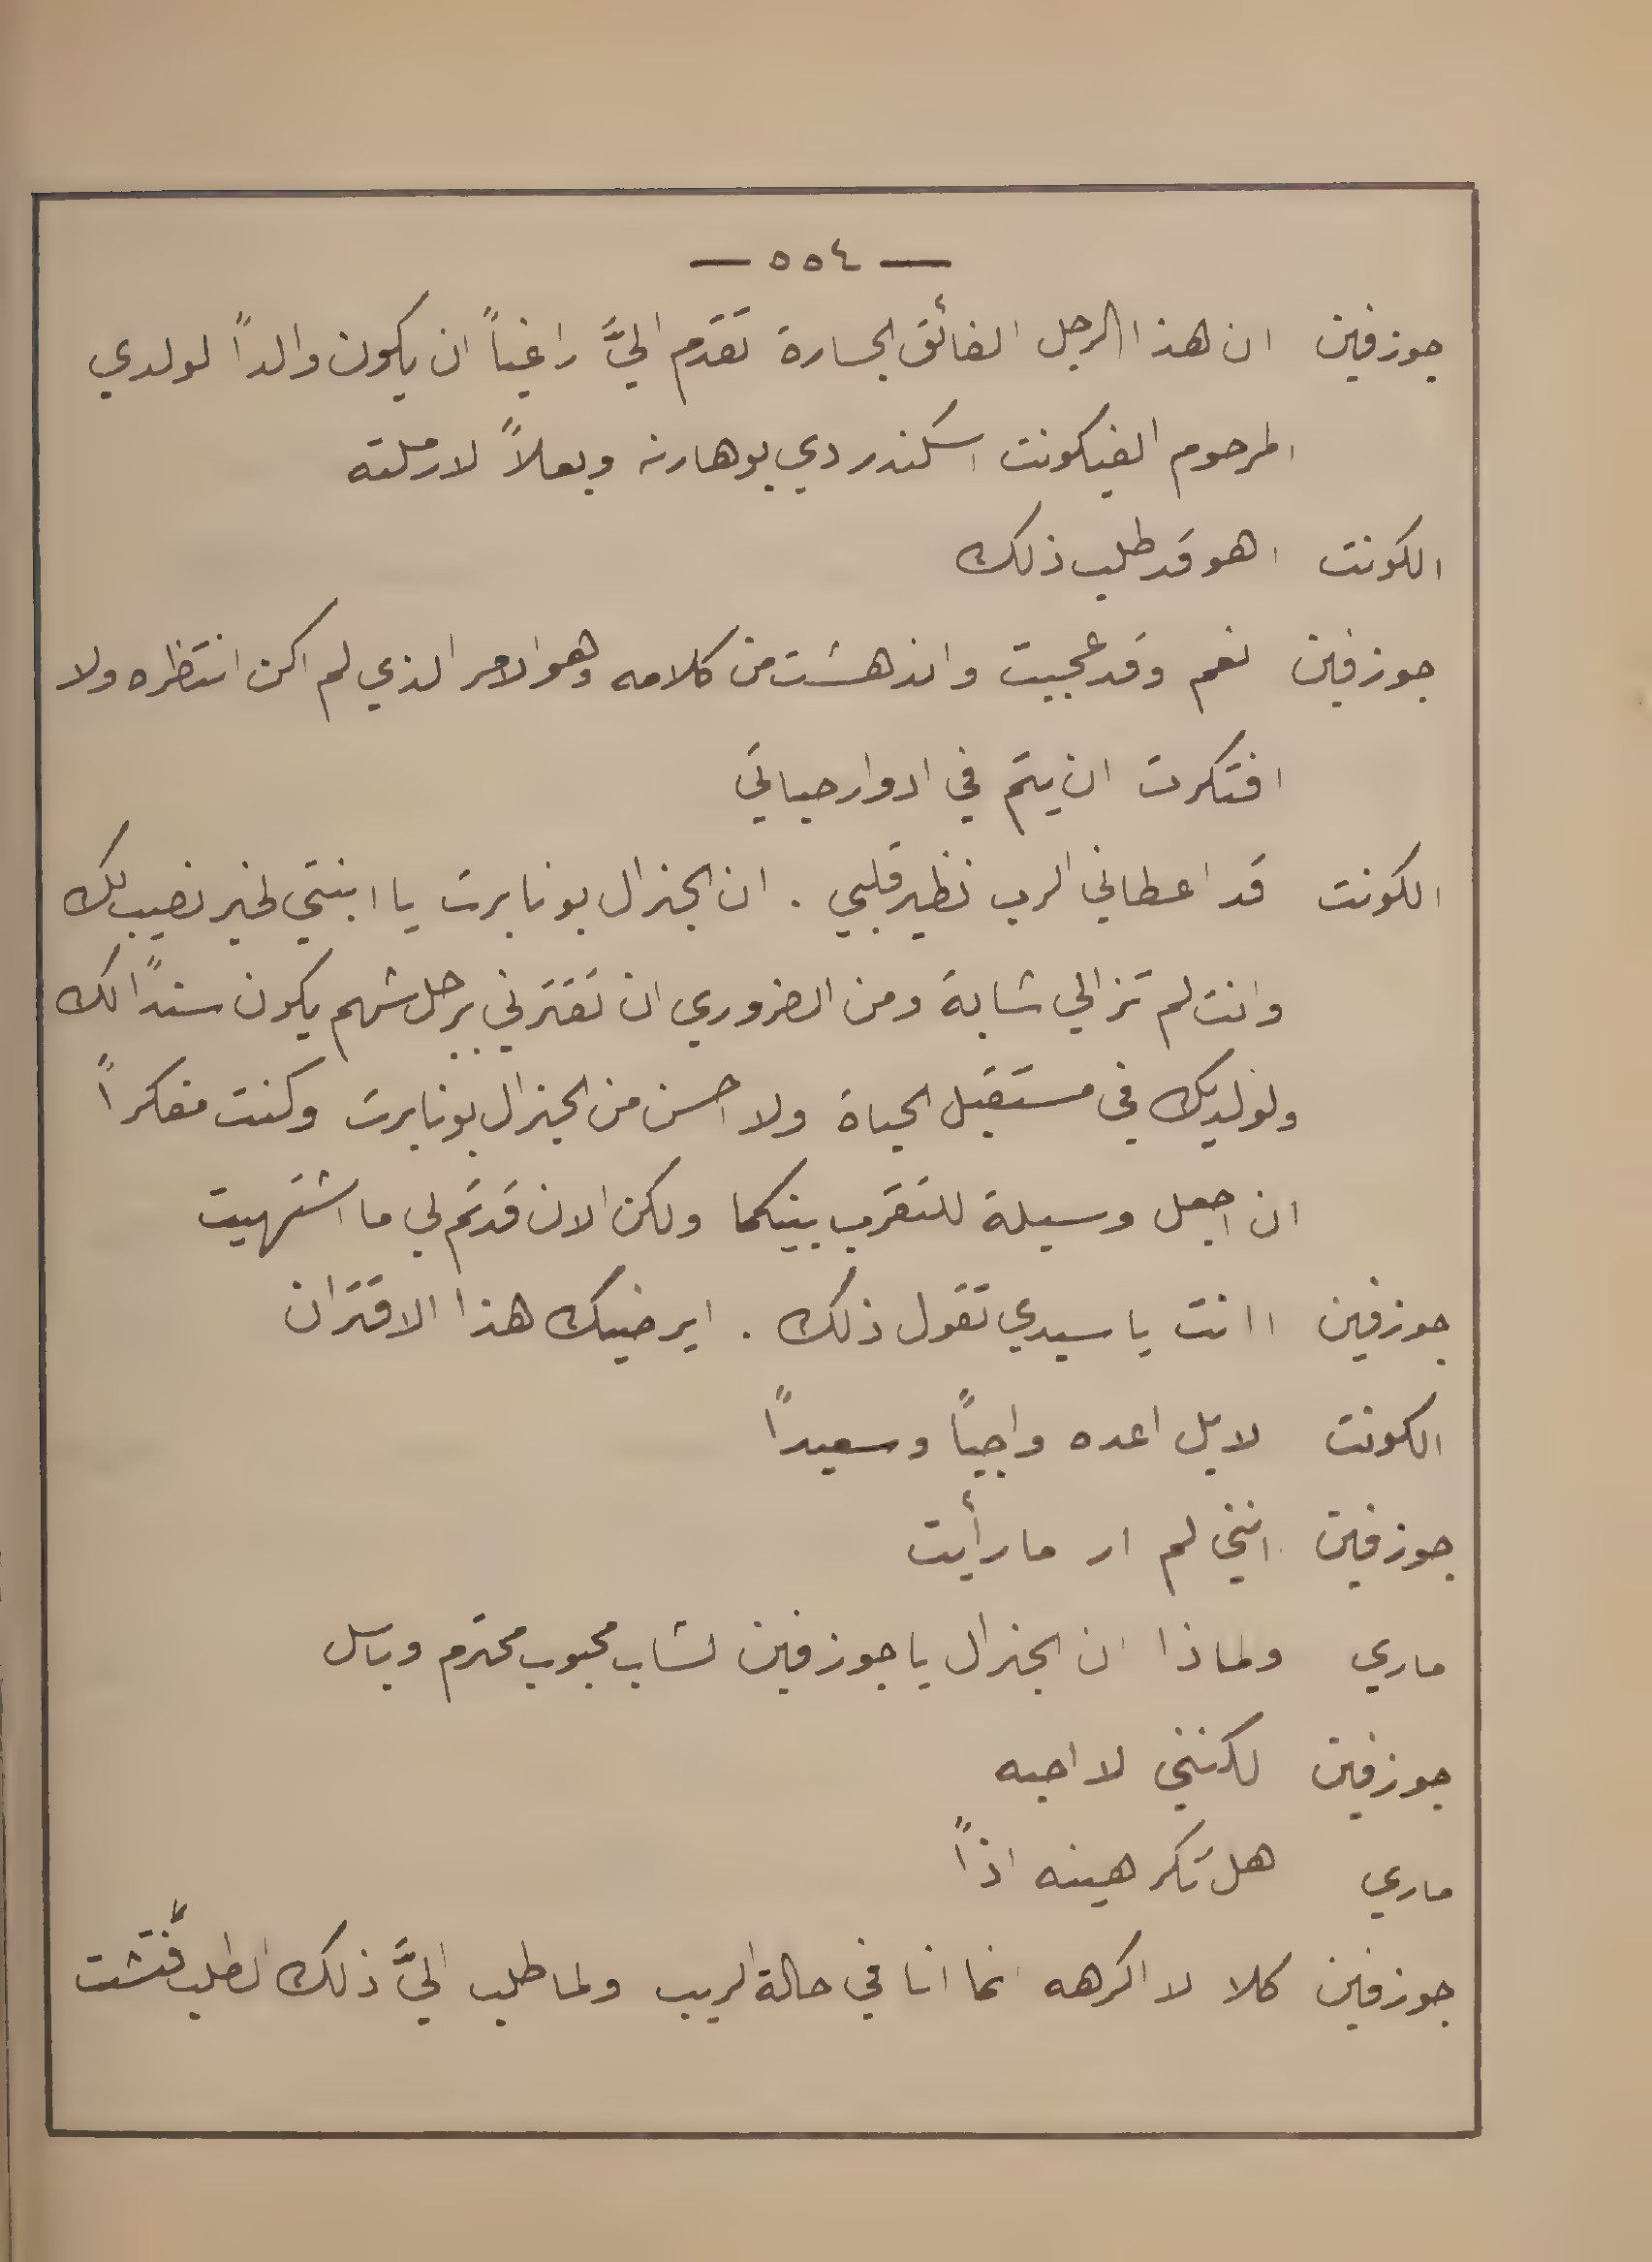 — ٥٥٤ —
جوزفين ان هذا الرجل الفائق الجسارة تقدم اليَّ راغباً ان يكون والداً لولدي
المرحوم الفيكونت اسكندر دي بوهارنه وبعلاً لارملته
الكونت اهو قد طلب ذلك
جوزفين نعم وقد عجبت واندهشت من كلامه وهو الامر الذي لم اكن انتظره ولا
افتكرت ان يتم في ادوار حياتي
الكونت قد اعطاني الرب نظير قلبي . ان الجنرال بونابرت يا ابنتي لخير نصيب لك
وانت لم تزالي شابة ومن الضروري ان تقترني برجل شهم يكون سنداً لك
ولولديك في مستقبل الحياة ولا احسن من الجنرال بونابرت وكنت مفكراً
ان اجعل وسيلة للتقرب بينكما ولكن الان قد تم لي ما اشتهيت
جوزفين اانت يا سيدي تقول ذلك . ايرضيك هذا الاقتران
الكونت لا بل اعده واجباً وسعيداً
جوزفين انني لم ار ما رأيت
ماري ولماذا ان الجنرال يا جوزفين لشاب محبوب محترم وباسل
جوزفين لكنني لا احبه
ماري هل تكرهينه اذاً
جوزفين كلا لا اكرهه انما انا في حالة الريب ولما طلب اليَّ ذلك الطلب فتَّشت